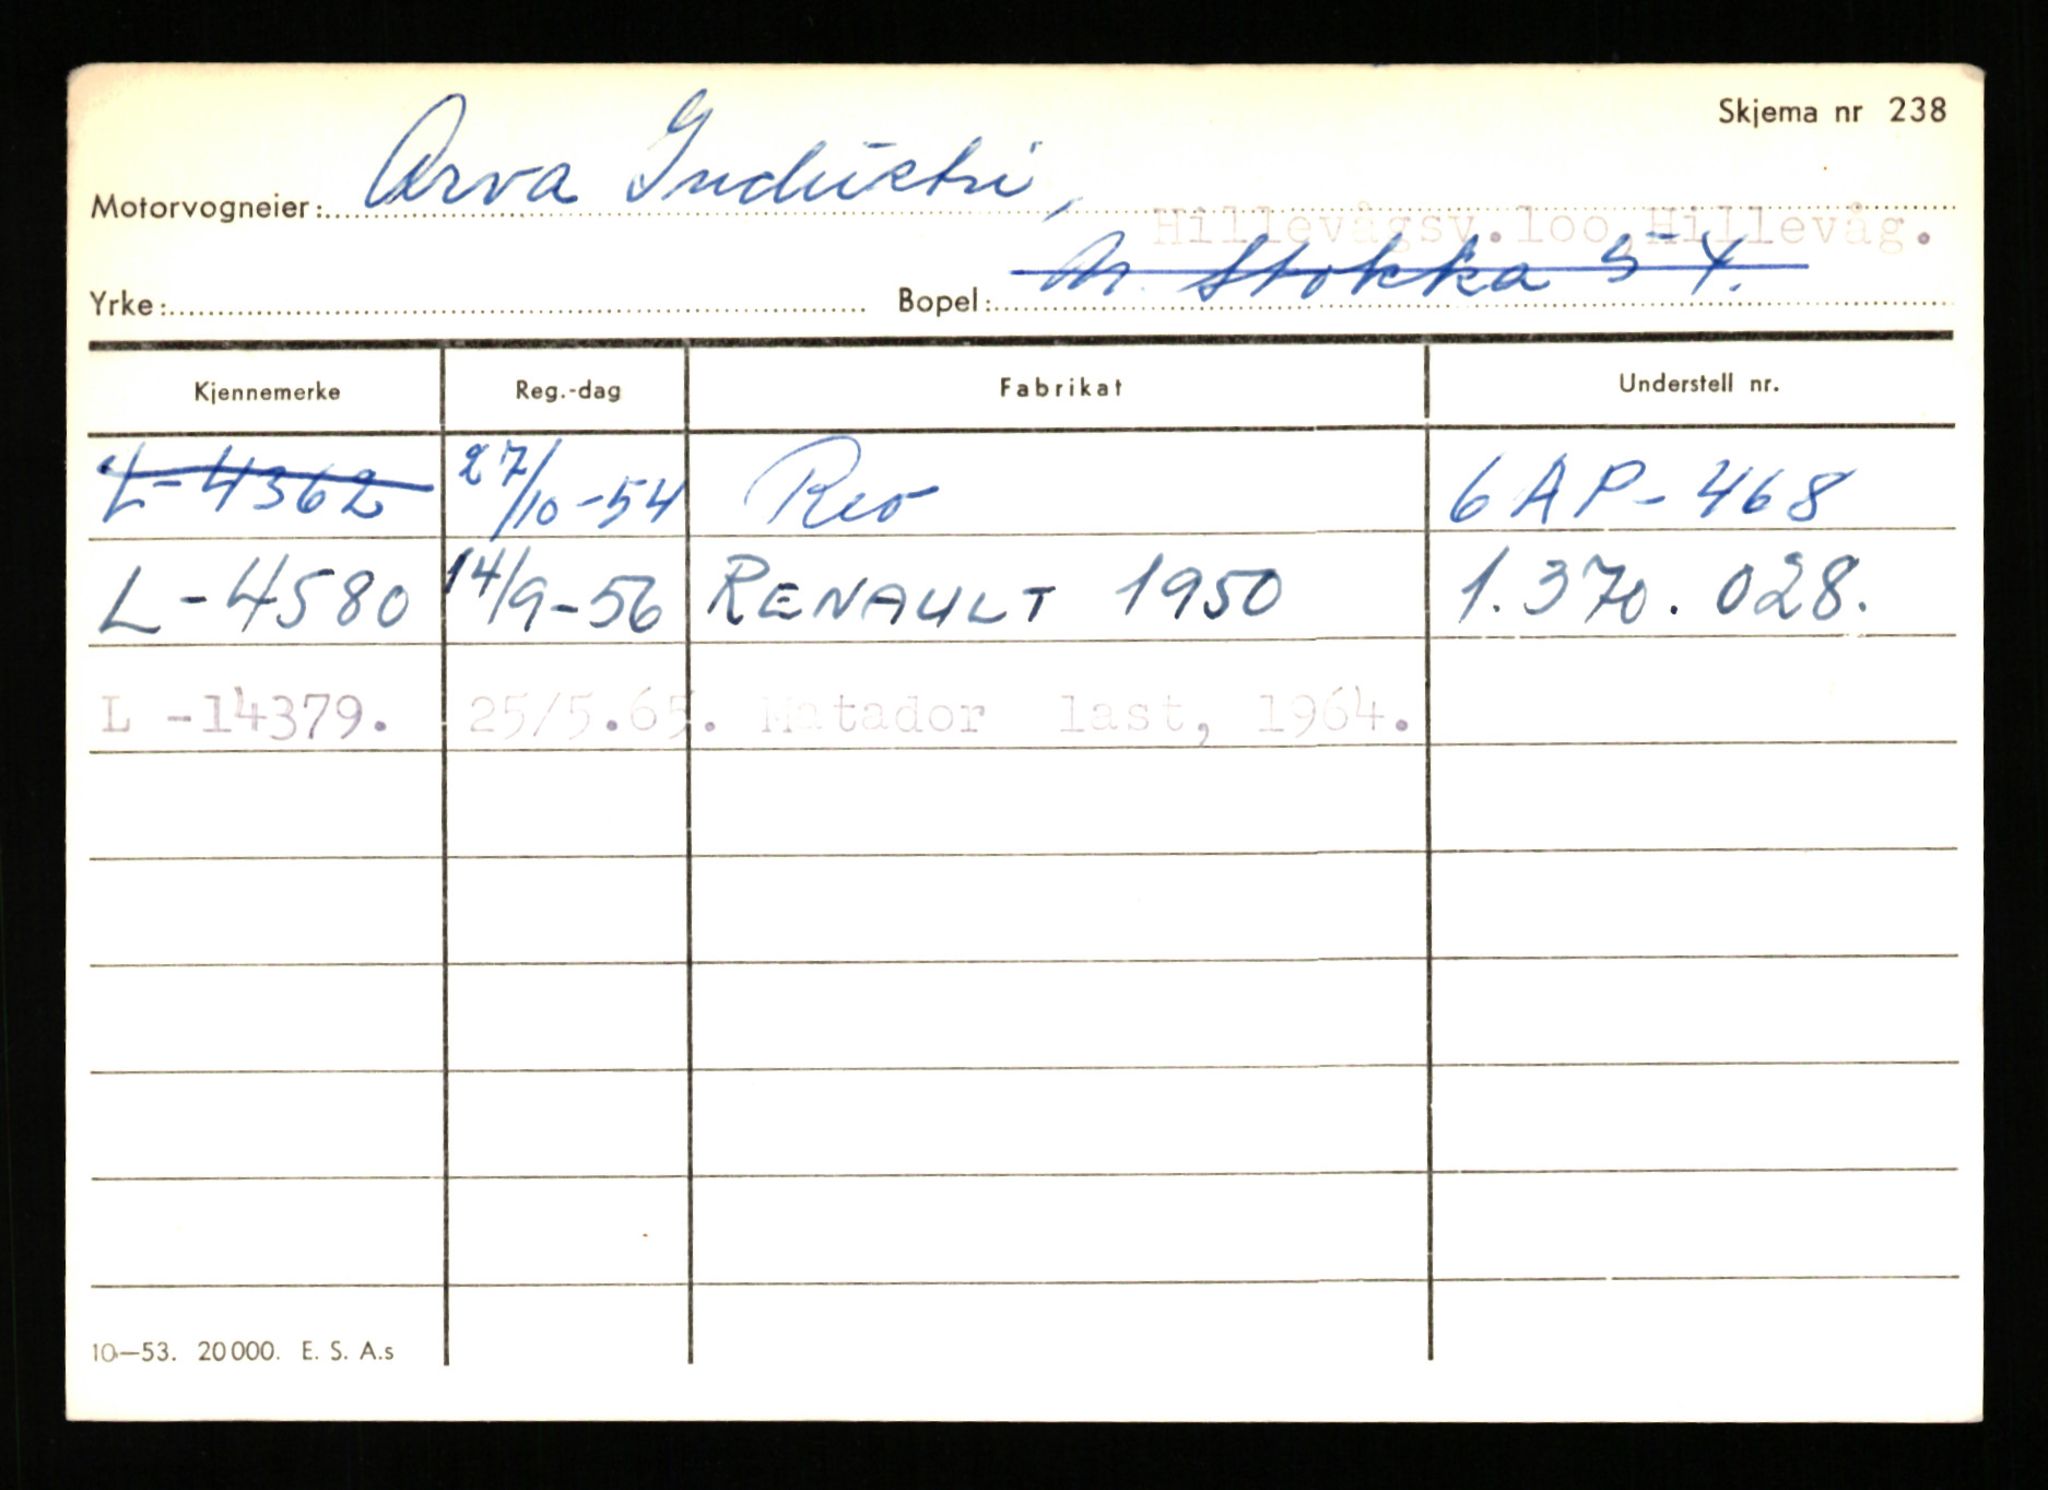 Skjema nr 238
Motorvogneier: Arva Industri,
Hillevågsv.loo, Hillevåg.
Yrke: Bopel: N. Stokka 54.
Kjennemerke Reg.-dag Fabrikat Understell nr.
L-4362 27/10-54 Reo 6AP-468
L-4580 14/9-56 RENAULT 1950 1.370.028.
L -14379. 25/5.65. Matador last, 1964.
10-53. 20000. E. S. A.s